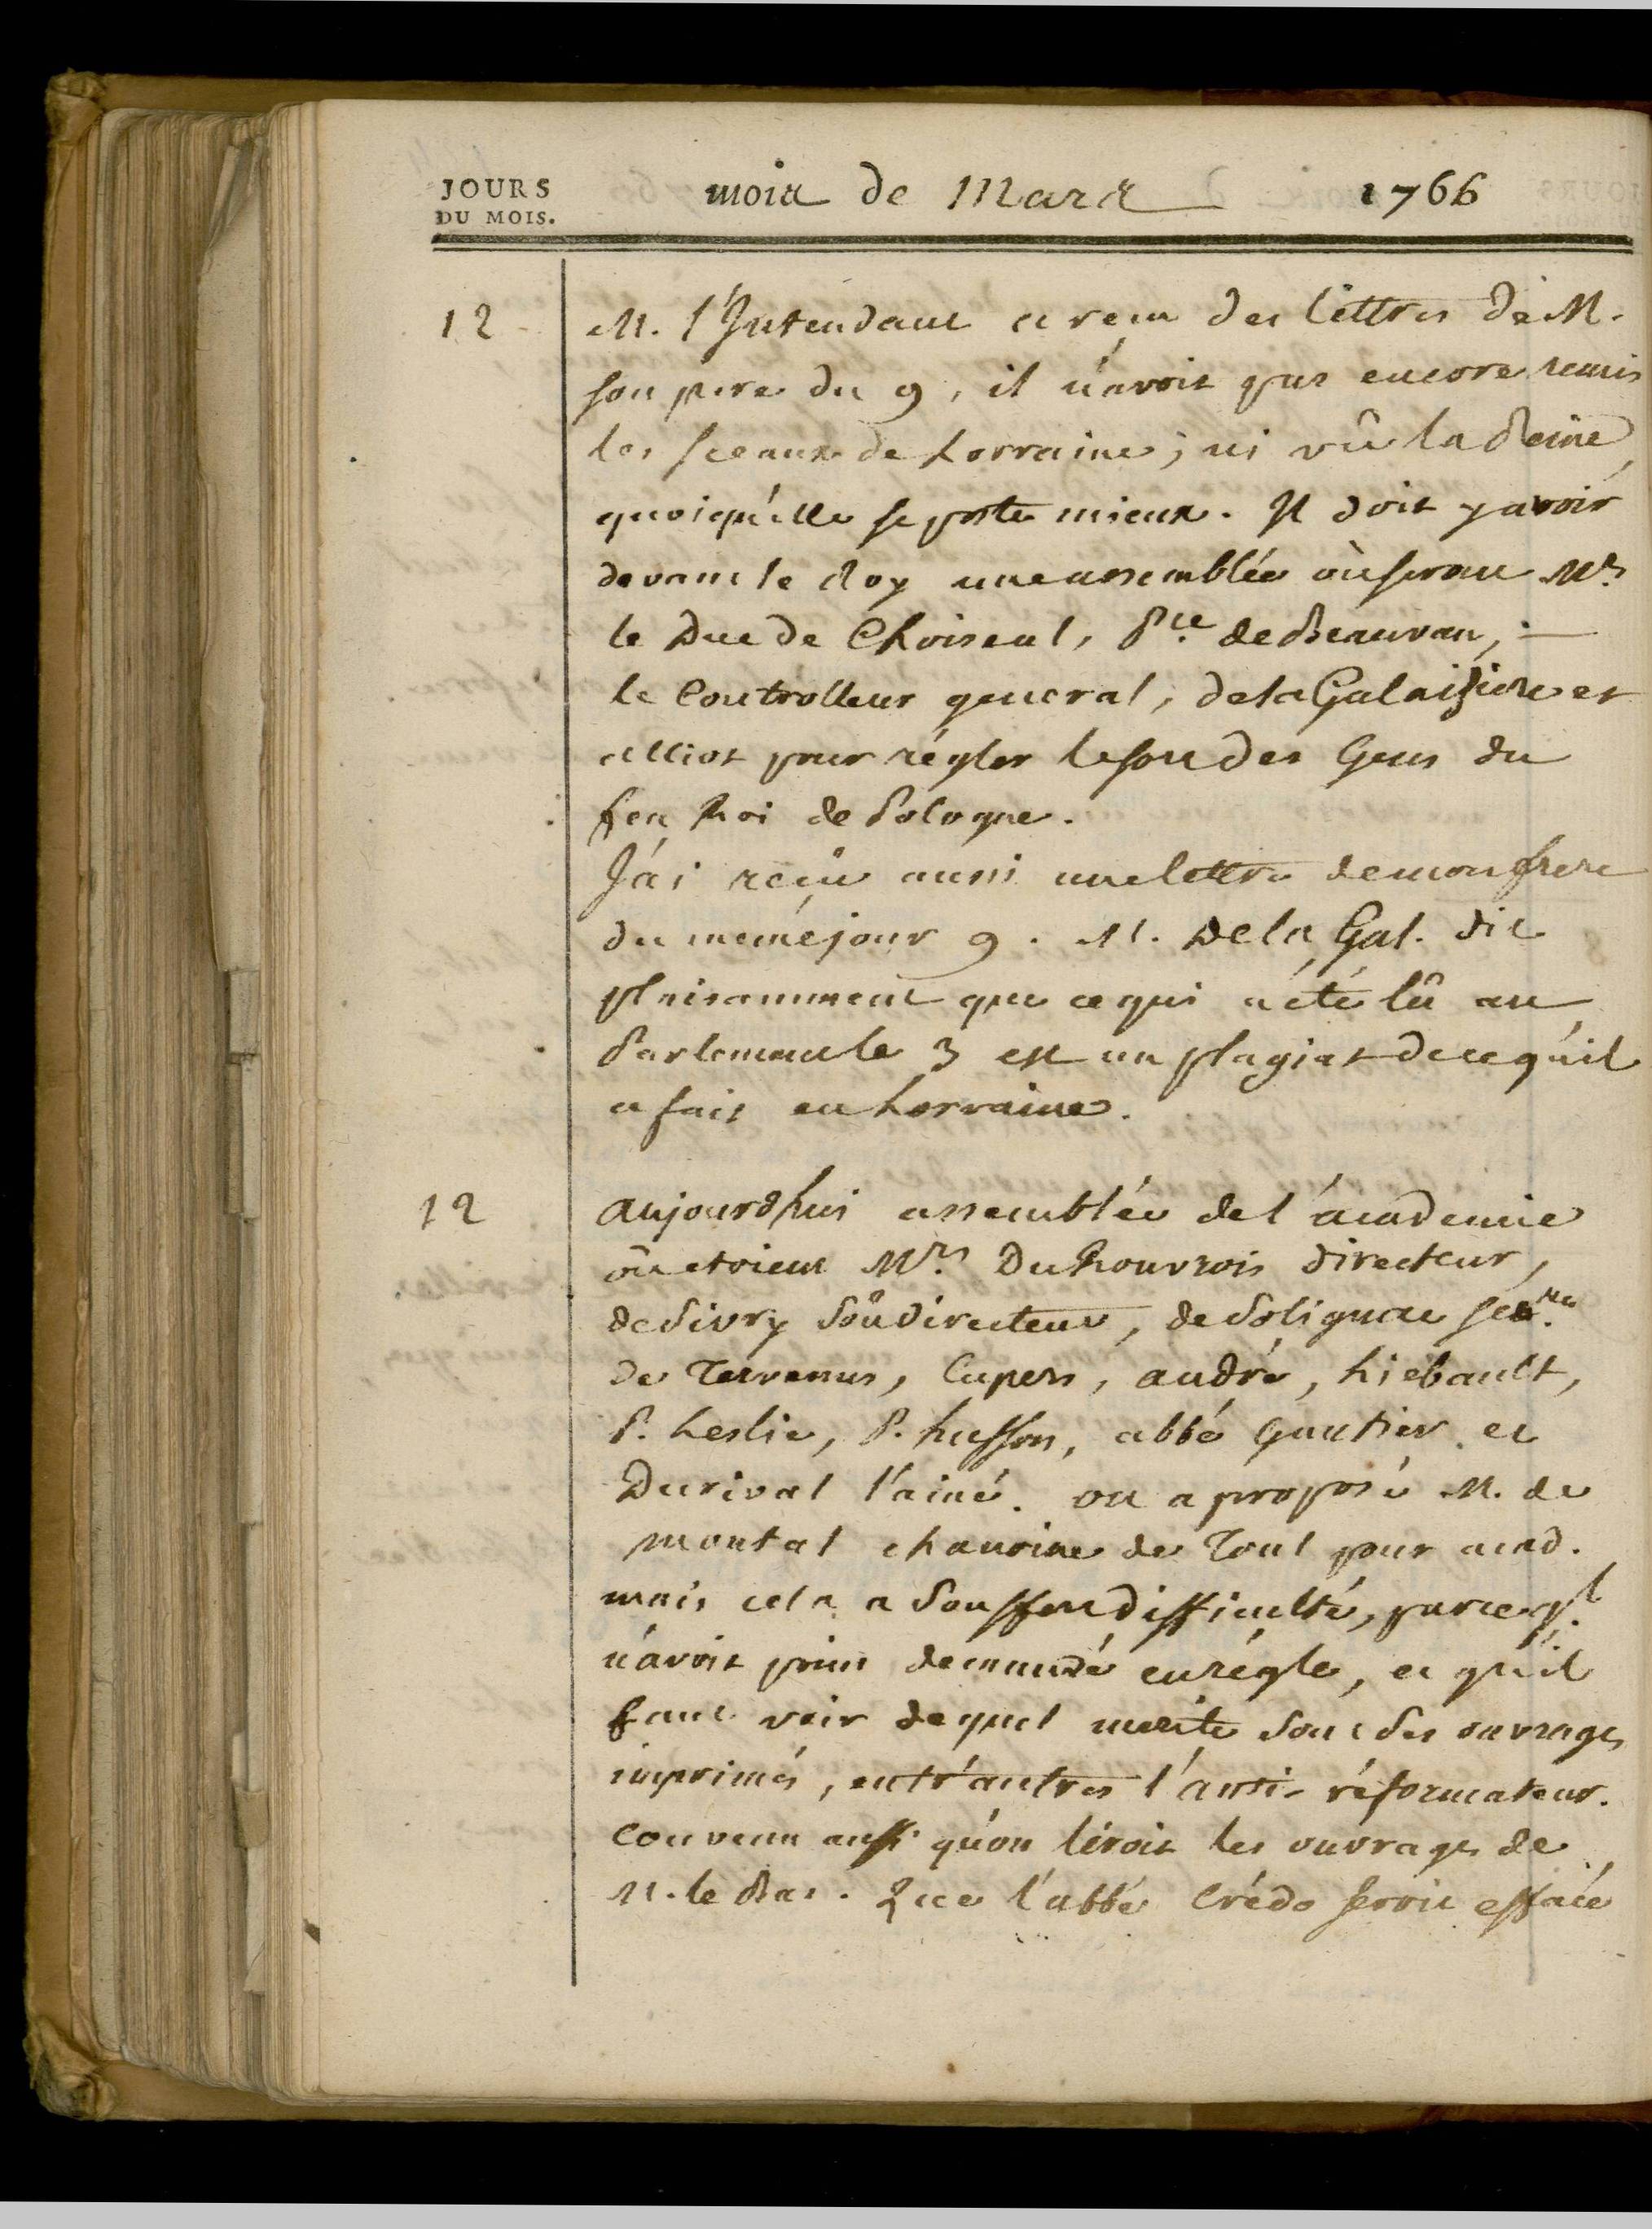 JOURS
DU MOIS.
mois de Mars 1766
12 M. l'Intendant a reçu des lettres de M.
son pere du 9, il n'avoit pas encore remis
les sceaux de Lorraine; ni vû la Reine
quoiqu'elle se porte mieux. Il doit y avoir
devant le Roy une assemblée où seront Mrs
le Duc de Choiseul, Pce de Beauvau,
le Controlleur general, de la Galaiziere et
alliot pour régler le sort des Gens du
feu Roi de Pologne.
J'ai reçu aussi une lettre de mon frere
du même jour 9. M. De la Gal. dit
plaisamment que ce qui a été lû au
Parlement le 3 est un plagiat de ce qu'il
a fait en Lorraine.
12 aujourd'hui assemblée de l'académie
où etoient Mrs. Du Rouvrois directeur,
de Sivry Soûdirecteur, de Solignac secre.
de Tervenus, Cupers, andré, Liébault,
P. Leslie, P. husson, abbé Gautier et
Durival l'ainé. on a proposé M. de
montal chanoine de Toul pour acad.
mais cela a souffert difficulté, parce q.l
n'avoit point demandé en régle, et qu'il
faut voir de quel merite sont ses ouvrages
imprimés, entr'autres l'anti-réformateur.
Convenu aussi qu'on liroit les ouvrages de
M. le Bas. Que l'abbé Crédo seroit effacé